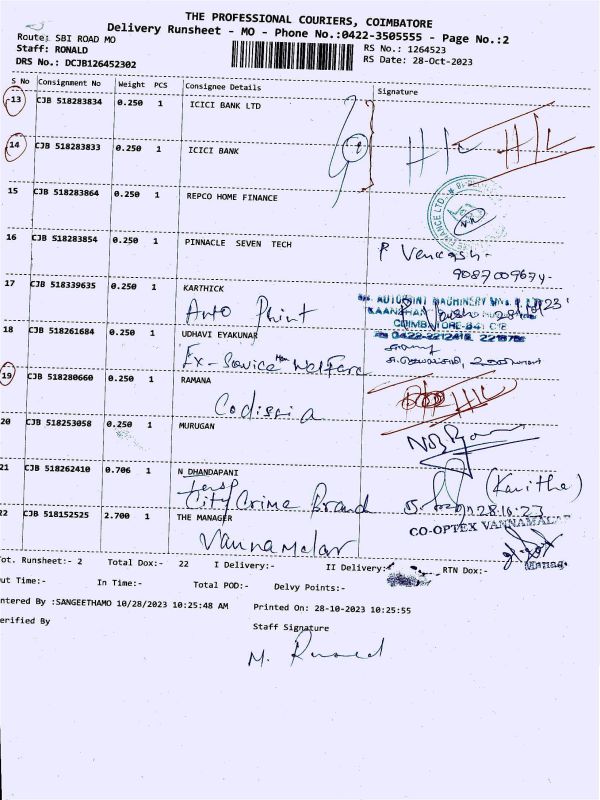 THE PROFESSIONAL COURIERS, COIMBATORE
Delivery Runsheet - MO - Phone No.:0422-3505555 - Page No.:2
Route: SBI ROAD MO
Staff: RONALD
DRS No.: DCJB126452302
RS No.: 1264523
RS Date: 28-Oct-2023
S No Consignment No Weight PCS Consignee Details Signature
13 CJB 518283834 0.250 1 ICICI BANK LTD
14 CJB 518283833 0.250 1 ICICI BANK
H/C H/C
15 CJB 518283864 0.250 1 REPCO HOME FINANCE
16 CJB 518283854 0.250 1 PINNACLE SEVEN TECH
P Vencash-
9087009674-
17 CJB 518339635 0.250 1 KARTHICK
Auto Print
AUTOPRINT MACHINERY
COIMBATORE-641
0422-2212416,
18 CJB 518261684 0.250 1 UDHAVI EYAKUNAR
Ex-Service Men Welfare
19 CJB 518280660 0.250 1 RAMANA
Codissia
H/C
20 CJB 518253058 0.250 1 MURUGAN
21 CJB 518262410 0.706 1 N DHANDAPANI
City Crime Brand
(Kavitha)
28.10.23
22 CJB 518152525 2.700 1 THE MANAGER
Vannamalar
CO-OPTEX VANNAMALAR
Manag
Tot. Runsheet:- 2 Total Dox:- 22 I Delivery:- II Delivery:- RTN Dox:-
Out Time:- In Time:- Total POD:- Delvy Points:-
Entered By :SANGEETHAMO 10/28/2023 10:25:48 AM Printed On: 28-10-2023 10:25:55
Verified By Staff Signature